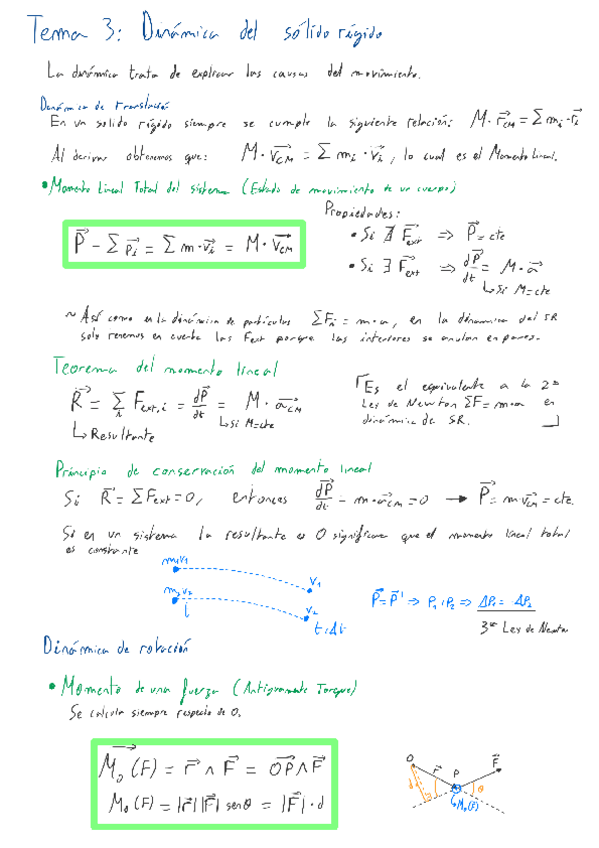 Tema 3: Dinámica del sólido rígido
La dinámica trata de explicar las causas del movimiento.
Dinámica de translación
En un solido rígido siempre se cumple la siguiente relación: M · r⃗CM = Σ mi · r⃗i
Al derivar obtenemos que: M · v⃗CM = Σ mi · v⃗i, lo cual es el Momento lineal.
• Momento Lineal Total del sistema (Estado de movimiento de un cuerpo)
Propiedades:
P⃗ = Σ p⃗i = Σ m · v⃗i = M · v⃗CM
• Si ∄ F⃗ext ⇒ P⃗ = cte
• Si ∃ F⃗ext ⇒ dP⃗/dt = M · a⃗
↳ Si M = cte
~ Así como en la dinámica de partículas ΣFi = m · a, en la dinámica del SR
solo tenemos en cuenta las Fext porque las interiores se anulan en pares.
Teorema del momento lineal
R⃗ = Σi Fext,i = dP⃗/dt = M · a⃗CM
↳ Si M = cte
↳ Resultante
Es el equivalente a la 2ª
Ley de Newton ΣF = m · a en
dinámica de SR.
Principio de conservación del momento lineal
Si R⃗ = ΣFext = 0, entonces dP⃗/dt = m · a⃗CM = 0 → P⃗ = m · v⃗CM = cte.
Si en un sistema la resultante es 0 significa que el momento lineal total
es constante
m1 v1
v1
m2 v2
v2
t
t+Δt
P⃗ = P⃗' ⇒ P1 + P2 ⇒ ΔP1 = ΔP2
3ª Ley de Newton
Dinámica de rotación
• Momento de una fuerza (Antiguamente Torque)
Se calcula siempre respecto de O.
M⃗o (F) = r⃗ ∧ F⃗ = OP⃗ ∧ F⃗
Mo (F) = |r⃗| |F⃗| senθ = |F⃗| · d
O
r⃗
P
F⃗
d
θ
Mo(F)